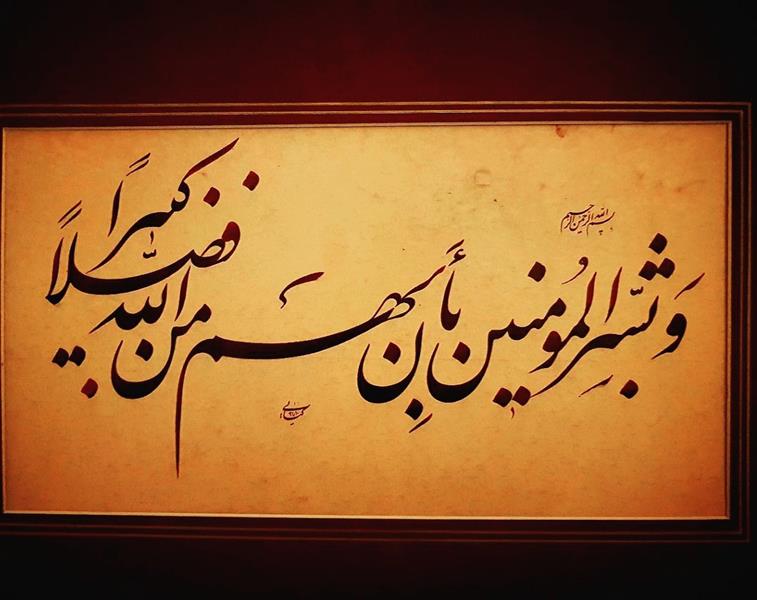 بسم الله الرحمن الرحیم
وَبشّرِ المُومنین بأَن لهم من اللّه فضلاً کبیراً